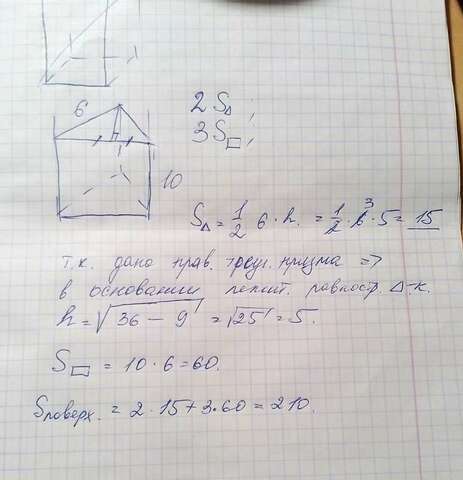 6
2 S△ ;
3 S▭ ;
10
S△ = 1/2 6 · h. = 1/2 · 6 3 · 5 = 15
т.к. дано прав. треуг. призма =>
в основании лежит. равностр. △-к.
h = √36 - 9 = √25 = 5.
S▭ = 10 · 6 = 60.
Sповерх. = 2 · 15 + 3 · 60 = 210.